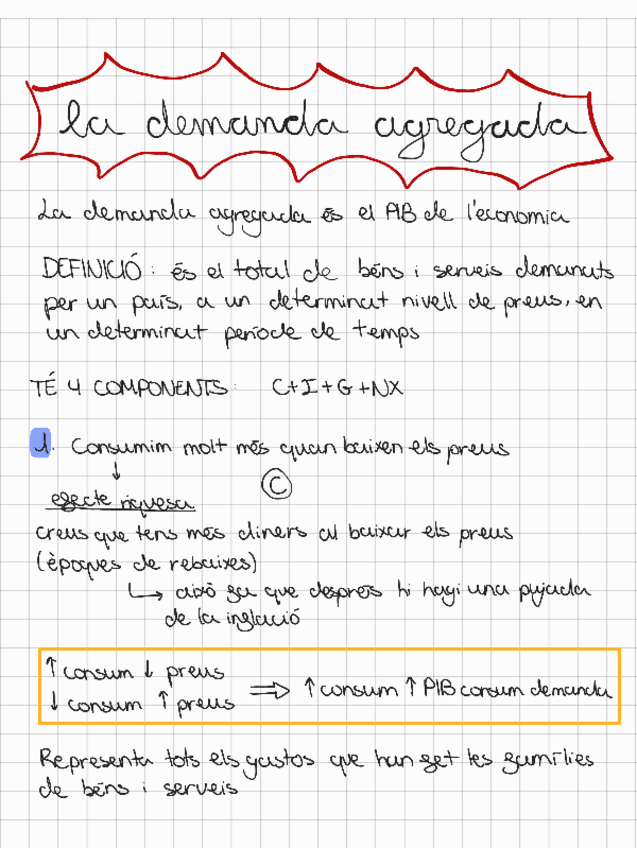 la demanda agregada
La demanda agregada és el PIB de l'economia
DEFINICIÓ: és el total de béns i serveis demanats
per un país, a un determinat nivell de preus, en
un determinat període de temps
TÉ 4 COMPONENTS: C+I+G+NX
1. Consumim molt més quan baixen els preus
↓
efecte riquesa
C
creus que tens més diners al baixar els preus
(èpoques de rebaixes)
↳ això fa que després hi hagi una pujada
de la inflació
↑ consum ↓ preus
↓ consum ↑ preus ⇒ ↑ consum ↑ PIB consum demanda
Representa tots els gastos que han fet les famílies
de béns i serveis